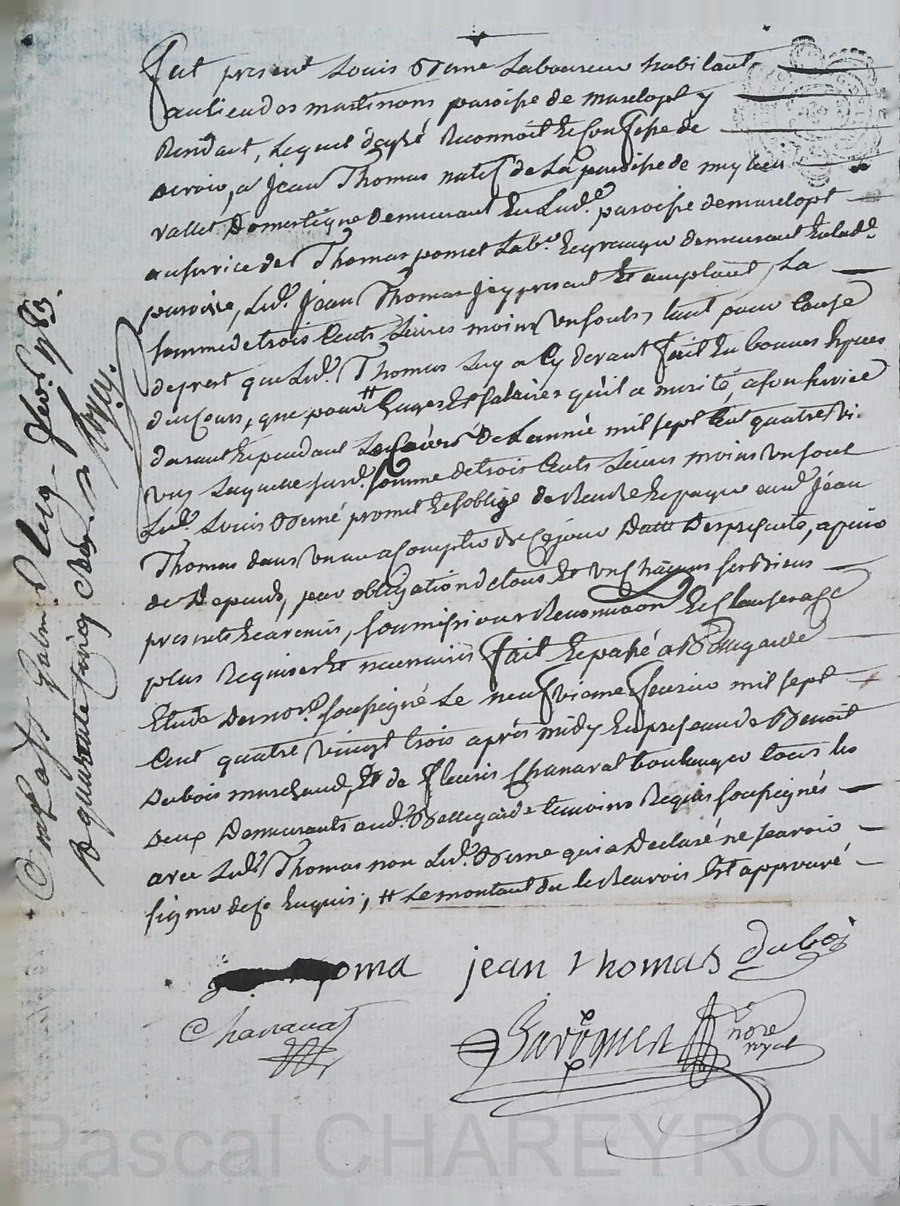 fut present Louis Verne Laboureur habitant
au lieu des martinons paroisse de marclopt y
Rendant, Lequel de gré Reconnoit et Confesse de
devoir, a Jean Thomas natif de La paroisse de
vallet Domestique demeurant En Lad.e paroisse de marclopt
au service de Thomas ponset Lab.r et granger demeurant En lad.e
paroisse, Lud. Jean Thomas Icy present et acceptant, La
somme de trois Cents Livres moins un sout, tant pour Cause
de prest que Lud. Thomas Luy a Cy devant fait En bonnes Especes
du Cours, que pour # Gages Et salaires qu'il a merité, a son service
durant Et pendant de Lannée mil sept Cent quatre vi
Laquelle susd. somme de trois Cents Livres moins un sout
Lud. Louis Verne promet Et s'oblige de Rendre Et payer aud. Jean
Thomas dans un an a Compter de Ce jour Datte Des presentes, a peine
de Depends, par obligation de tous Et un Chacuns ses Biens
presents Et avenir, soumission Renonciation Et Clauses a ce
plus Requises Et necessaires fait Et passé a Bellegarde
Etude du not.re soussigné Le neufvieme fevrier mil sept
Cent quatre vingt trois après midy En presence de Benoit
Dubois marchand, Et de fleuris Chanavat boulanger tous les
deux Demeurants aud. Bellegarde temoins Requis soussignés
avec Lud. Thomas non Lud. Verne qui a Declaré ne sçavoir
signer de ce Enquis, # Le montant du Est approuvé
oma jean thomas dubois
Chanavat
nore royal
Con.lé a St galm. Le cinq fev.r 1783.
R quarante cinq
Pascal CHAREYRON